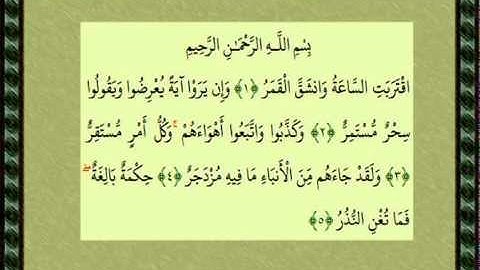 بِسْمِ اللَّهِ الرَّحْمَٰنِ الرَّحِيمِ
اقْتَرَبَتِ السَّاعَةُ وَانشَقَّ الْقَمَرُ ﴿١﴾ وَإِن يَرَوْا آيَةً يُعْرِضُوا وَيَقُولُوا
سِحْرٌ مُّسْتَمِرٌّ ﴿٢﴾ وَكَذَّبُوا وَاتَّبَعُوا أَهْوَاءَهُمْ ۚ وَكُلُّ أَمْرٍ مُّسْتَقِرٌّ
﴿٣﴾ وَلَقَدْ جَاءَهُم مِّنَ الْأَنبَاءِ مَا فِيهِ مُزْدَجَرٌ ﴿٤﴾ حِكْمَةٌ بَالِغَةٌ ۖ
فَمَا تُغْنِ النُّذُرُ ﴿٥﴾